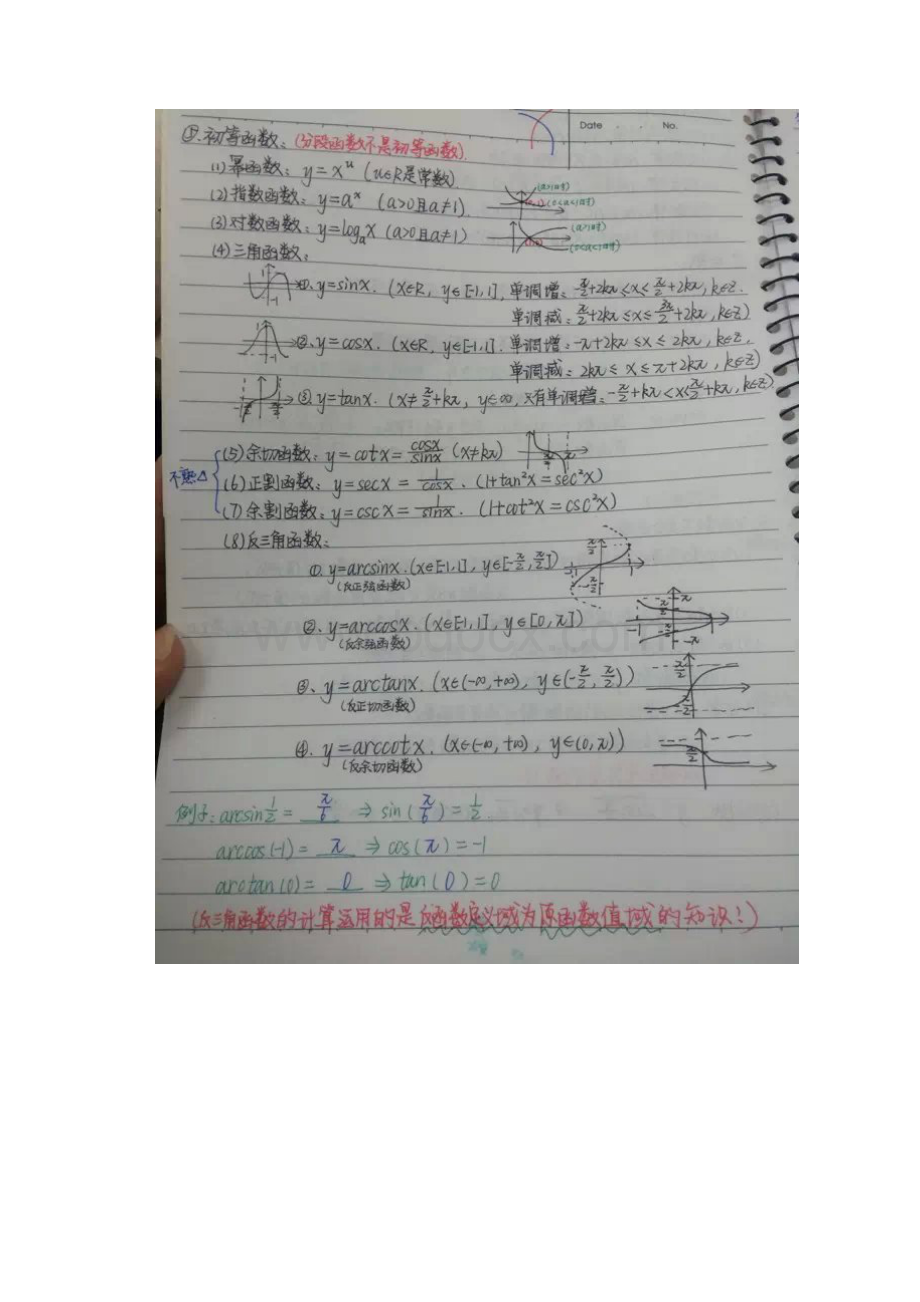 Date . . No.
⑤.初等函数:(分段函数不是初等函数).
(1)幂函数: y=xᵘ (u∈R是常数)
(2)指数函数: y=aˣ (a>0且a≠1). (a>1时) (0<a<1时)
(3)对数函数: y=logₐx (a>0且a≠1) (a>1时) (0<a<1时)
(4)三角函数:
①、y=sinx. (x∈R, y∈[-1,1], 单调增: -π/2+2kπ≤x≤π/2+2kπ, k∈Z.
单调减: π/2+2kπ≤x≤3π/2+2kπ, k∈Z)
②、y=cosx. (x∈R, y∈[-1,1]. 单调增: -π+2kπ≤x≤2kπ, k∈Z,
单调减: 2kπ≤x≤π+2kπ, k∈Z)
③、y=tanx. (x≠π/2+kπ, y∈∞, 只有单调增: -π/2+kπ<x<π/2+kπ, k∈Z).
不熟△
(5)余切函数: y=cotx=cosx/sinx (x≠kπ)
(6)正割函数: y=secx=1/cosx. (1+tan²x=sec²x)
(7)余割函数: y=cscx=1/sinx. (1+cot²x=csc²x)
(8)反三角函数:
①.y=arcsinx.(x∈[-1,1], y∈[-π/2,π/2])
(反正弦函数)
②、y=arccosx.(x∈[-1,1], y∈[0,π])
(反余弦函数)
③、y=arctanx.(x∈(-∞,+∞), y∈(-π/2,π/2))
(反正切函数)
④. y=arccotx.(x∈(-∞,+∞), y∈(0,π))
(反余切函数)
例子: arcsin1/2= π/6 ⇒sin(π/6)=1/2.
arccos(-1)= π ⇒cos(π)=-1
arctan(0)= 0 ⇒tan(0)=0
(反三角函数的计算运用的是反函数定义域为原函数值域的知识!)